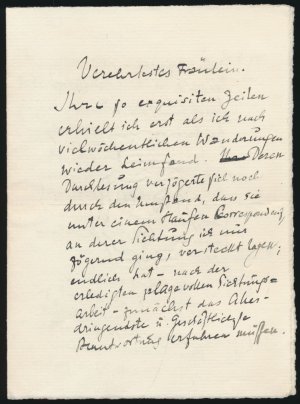 Verehrtestes Fräulein.
Ihre so exquisiten Zeilen
erhielt ich erst als ich nach
vielwöchentlichen Wanderungen
wieder heimfand. Deren
Durchlesung verzögerte sich noch
durch den Umstand, dass sie
unter einem Haufen Correspondenz
an derer Sichtung ich nur
zögernd ging, versteckt lagen;
endlich hat - nach der
erledigten plagevollen Sichtungs=
arbeit - zunächst das Aller-
dringendste u. Geschäftliche
Beantwortung erfahren müssen.